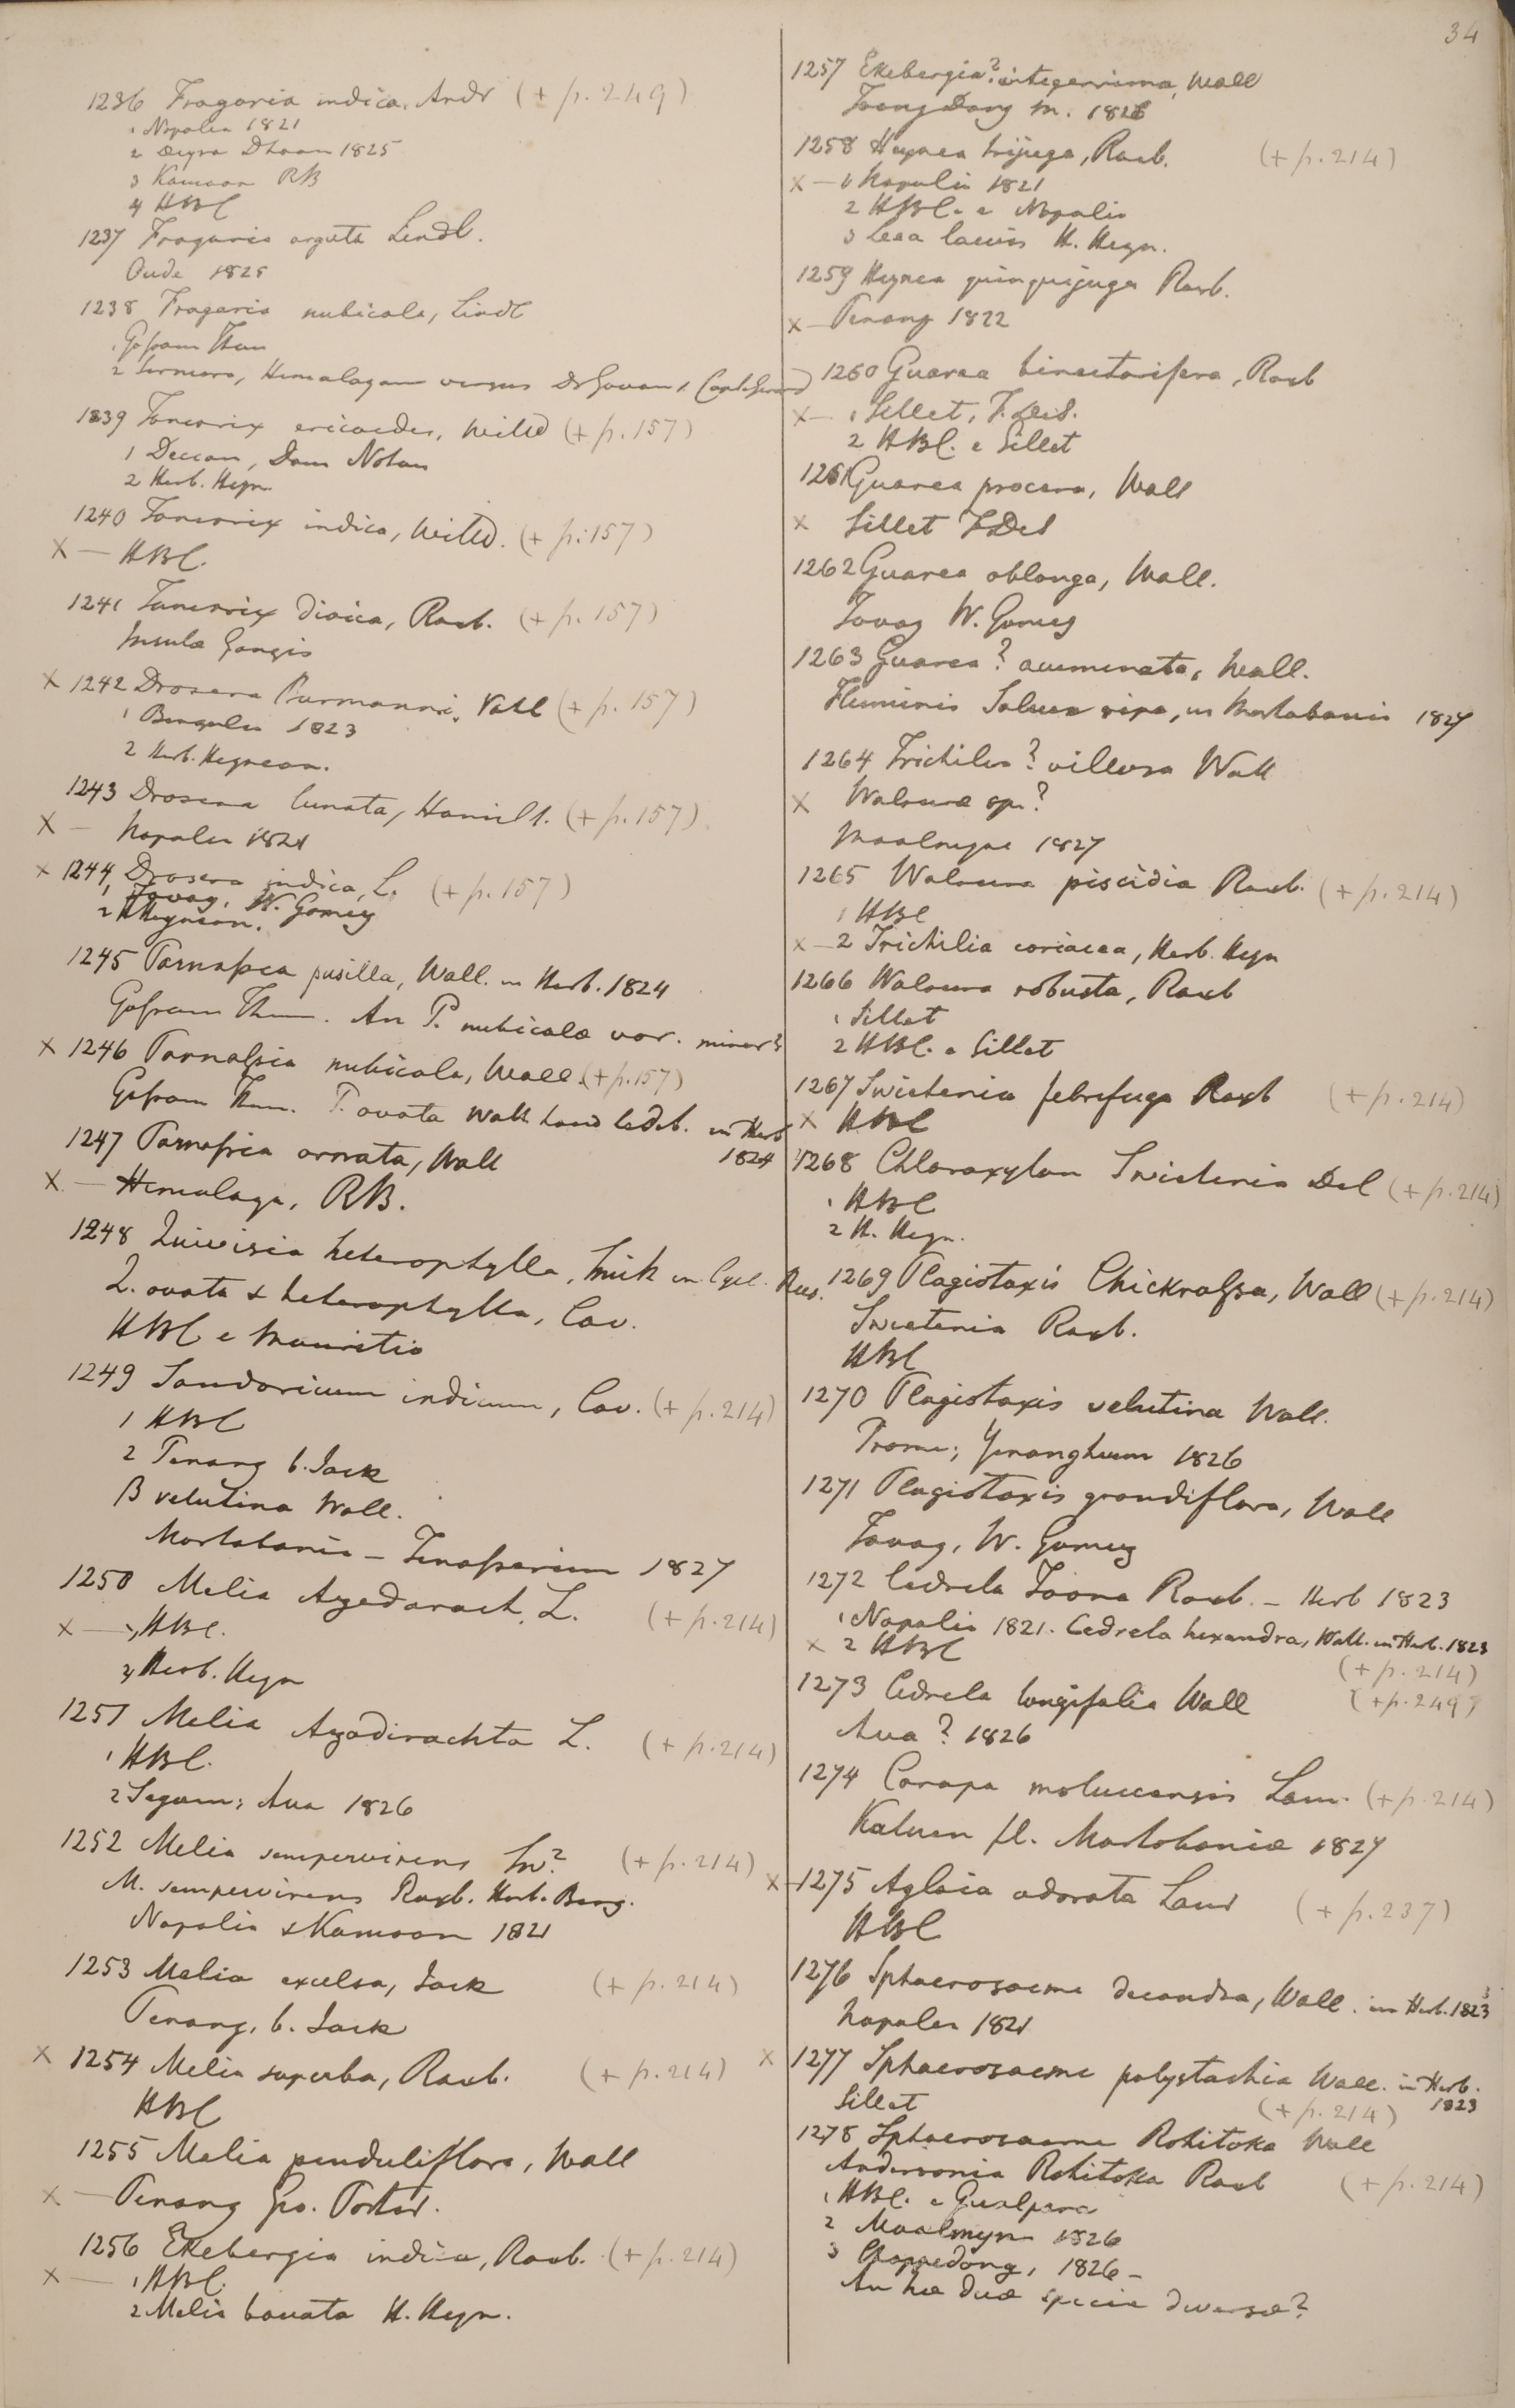 34
1236 Fragaria indica, Andr (+ p. 249)
1 Napalia 1821
2 Deyra Dhoon 1825
3 Kamaon RB
4 HBC
1237 Fragaria arguta Lindl.
Oude 1825
1238 Fragaria nubicola, Lindl
1 Gossam Than
2 Sirmore, Himalayam versus Dr Govan &
1239 Tamarix ericoides, Willd (+ p. 157)
1 Deccan, Dom Noton
2 Herb. Heyn
1240 Tamarix indica, Willd. (+ p. 157)
X — HBC.
1241 Tamarix dioica, Roxb. (+ p. 157)
Insula Gangis
X 1242 Drosera Burmanni, Vahl (+ p. 157)
1 Bengalia 1823
2 Herb. Heynean.
1243 Drosera lunata, Hamilt. (+ p. 157)
X — Napalia 1821
X 1244 Drosera indica, L. (+ p. 157)
1 Tavoy, W. Gomez
2 H Heynean.
1245 Parnassia pusilla, Wall. in Herb. 1824
Gossam Than. An P. nubicolæ var. minor?
X 1246 Parnassia nubicola, Wall. (+ p. 157)
Gossam Than. P. ovata Wall haud Ledeb. in Herb
1824
1247 Parnassia ornata, Wall
X — Himalaya, RB.
1248 Quivisia heterophylla, Smith in Cycl. Rees.
Q. ovata & heterophylla, Cav.
HBC e Mauritio
1249 Sandoricum indicum, Cav. (+ p. 214)
1 HBC
2 Penang G. Jack
β velutina Wall.
Martabania — Tenasserim 1827
1250 Melia Azedarach, L. (+ p. 214)
X — 1 HBC.
2 Herb. Heyn
1251 Melia Azadirachta L. (+ p. 214)
1 HBC.
2 Segaen; Ava 1826
1252 Melia sempervirens Sw? (+ p. 214)
M. sempervirens Roxb. Hort. Beng.
Napalia & Kamaon 1821
1253 Melia excelsa, Jack (+ p. 214)
Penang, G. Jack
X 1254 Melia superba, Roxb. (+ p. 214)
HBC
1255 Melia penduliflora, Wall
X — Penang Geo. Porter.
1256 Ekebergia indica, Roxb. (+ p. 214)
X — 1 HBC.
2 Melia H. Heyn.
1257 Ekebergia? integerrima, Wall
Toong Dong m. 1826
1258 Heynea trijuga, Roxb. (+ p. 214)
X — 1 Napalia 1821
2 HBC. e Napalia
3 Leea laevis H. Heyn.
1259 Heynea quinquejuga Roxb.
X — Penang 1822
1260 Guarea binectarifera, Roxb
X — 1 Sillet, F. de S.
2 HBC. e Sillet
1261 Guarea procera, Wall
X Sillet F DeS
1262 Guarea oblonga, Wall.
Tavoy W. Gomez
1263 Guarea? acuminata, Wall.
Fluminis Saluen ripa, in Martabania 1827
1264 Trichilia? villosa Wall
X Walsura sp.?
Moalmyne 1827
1265 Walsura piscidia Roxb. (+ p. 214)
1 HBC
X — 2 Trichilia coriacea, Herb. Heyn
1266 Walsura robusta, Roxb
1 Sillet
2 HBC. e Sillet
1267 Swietenia febrifuga Roxb (+ p. 214)
X HBC
1268 Chloroxylon Swietenia Del (+ p. 214)
1 HBC
2 H. Heyn.
1269 Plagiotaxis Chickrassa, Wall (+ p. 214)
Swietenia Roxb.
HBC
1270 Plagiotaxis velutina Wall.
Prome; Yenanghuem 1826
1271 Plagiotaxis grandiflora, Wall
Tavoy, W. Gomez
1272 Cedrela Toona Roxb. — Herb 1823
1 Napalia 1821. Cedrela hexandra, Wall. in Herb. 1823
X 2 HBC
(+ p. 214)
1273 Cedrela longifolia Wall (+ p. 249)
Ava? 1826
1274 Carapa moluccensis Lam. (+ p. 214)
Kaluen fl. Martobaniæ 1827
X 1275 Aglaia odorata Lour (+ p. 237)
HBC
1276 Sphaerosacme decandra, Wall. in Herb. 1823
Napalia 1821
X 1277 Sphaerosacme polystachia Wall. in Herb.
1823
Sillet (+ p. 214)
1278 Sphaerosacme Rohitoka Wall
Andersonia Rohitoka Roxb (+ p. 214)
1 HBC. e Gualpara
2 Moalmyn 1826
3 Chappedong, 1826 —
An hæ duæ specie diversæ?